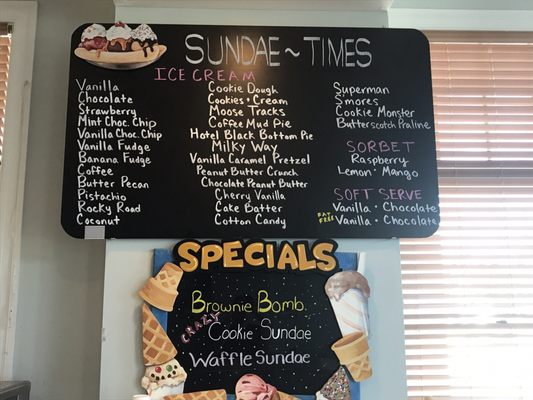 SUNDAE ~ TIMES
ICE CREAM
Vanilla
Chocolate
Strawberry
Mint Choc. Chip
Vanilla Choc. Chip
Vanilla Fudge
Banana Fudge
Coffee
Butter Pecan
Pistachio
Rocky Road
Coconut
Cookie Dough
Cookies + Cream
Moose Tracks
Coffee Mud Pie
Hotel Black Bottom Pie
Milky Way
Vanilla Caramel Pretzel
Peanut Butter Crunch
Chocolate Peanut Butter
Cherry Vanilla
Cake Batter
Cotton Candy
Superman
S'mores
Cookie Monster
Butterscotch Praline
SORBET
Raspberry
Lemon • Mango
SOFT SERVE
Vanilla • Chocolate
FAT FREE Vanilla • Chocolate
SPECIALS
Brownie Bomb.
CRAZY Cookie Sundae
Waffle Sundae